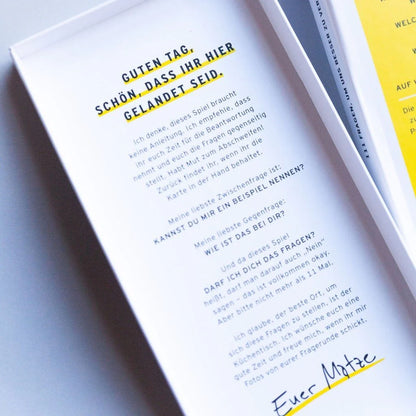 GUTEN TAG,
SCHÖN, DASS IHR HIER
GELANDET SEID.
Ich denke, dieses Spiel braucht
keine Anleitung. Ich empfehle, dass
ihr euch Zeit für die Beantwortung
nehmt und euch die Fragen gegenseitig
stellt. Habt Mut zum Abschweifen!
Zurück findet ihr, wenn ihr die
Karte in der Hand behaltet.
Meine liebste Zwischenfrage ist:
KANNST DU MIR EIN BEISPIEL NENNEN?
Meine liebste Gegenfrage:
WIE IST DAS BEI DIR?
Und da dieses Spiel
DARF ICH DICH DAS FRAGEN?
heißt, darf man darauf auch „Nein“
sagen – das ist vollkommen okay.
Aber bitte nicht mehr als 11 Mal.
Ich glaube, der beste Ort, um
sich diese Fragen zu stellen, ist der
Küchentisch. Ich wünsche euch eine
gute Zeit und freue mich, wenn ihr mir
Fotos von eurer Fragerunde schickt.
Euer Motze
WELC
AUF
Die
zu
P
FRAGEN, UM UNS BESSER ZU VER